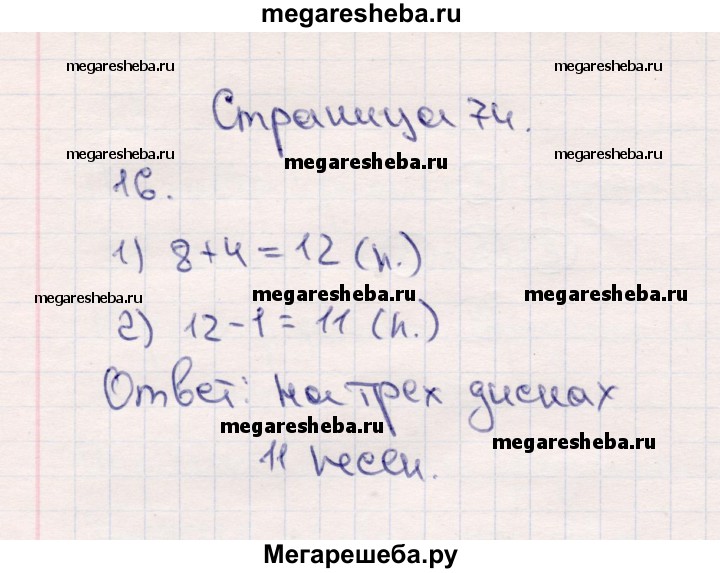 megaresheba.ru
megaresheba.ru megaresheba.ru
Страница 74.
megaresheba.ru megaresheba.ru megaresheba.ru
16.
1) 8+4=12 (п.)
megaresheba.ru megaresheba.ru megaresheba.ru
2) 12-1=11 (п.)
Ответ: на трех дисках
megaresheba.ru megaresheba.ru
11 песен.
Мегарешеба.ру